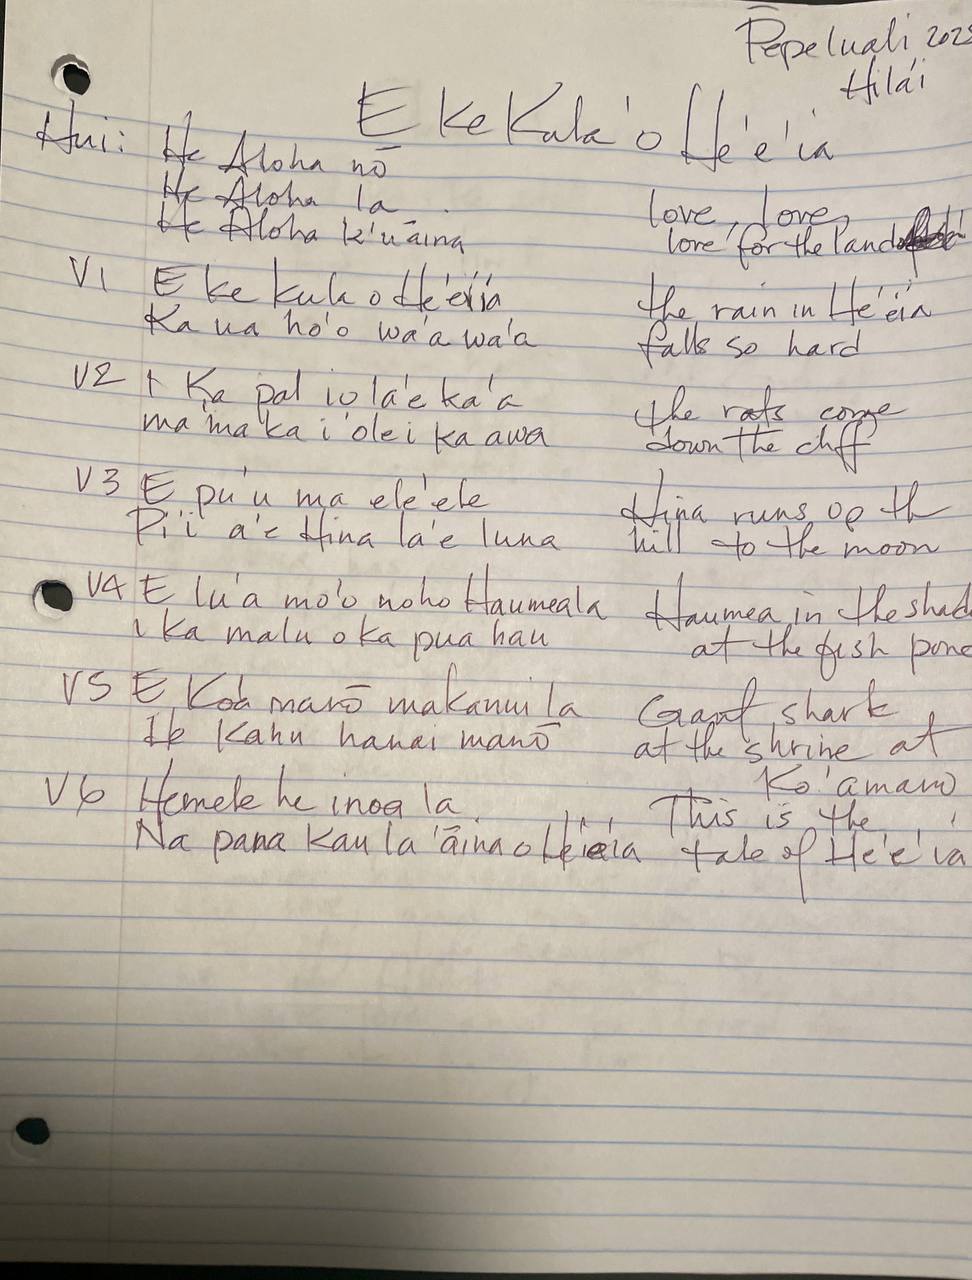 Pēpeluali 202
Hilái
E Ke Kula 'o He'e'ia
Hui: He Aloha nō
He Aloha la
He Aloha k'u āina
love, love,
love for the land
V1 E ke kula o He'e'ia
Ka ua ho'o wa'a wa'a
the rain in He'e'ia
falls so hard
V2 I Ka pal io la'e ka'a
ma'ma ka i'ole i ka awa
the rats come
down the cliff
V3 E pu'u ma ele'ele
Pi'i a'e Hina la'e luna
Hina runs up th
hill to the moon
V4 E lu'a mo'o noho Haumeala
i ka malu o ka pua hau
Haumea in the shad
at the fish pone
V5 E Koá manō makanui la
Ik Kahu hanai manō
Giant shark
at the shrine at
Ko'amano
V6 Hemele he inoa la
Na pana Kau la 'āina o He'e'ia
This is the
tale of He'e'ia